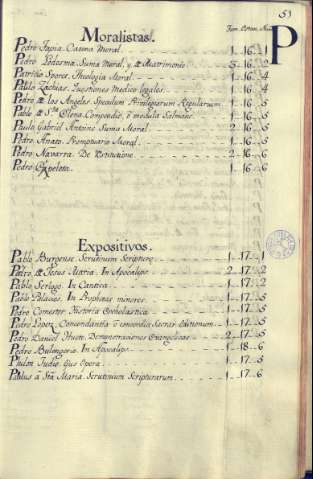 51
Moralistas.
Tom. Estan. Num.
P
Pedro Tapia. Catena Moral. 1 16 1
Pedro Ledesma. Suma Moral, y de Matrimonio 3 16 2
Patricio Sporer. Theologia Moral 1 16 4
Pablo Zachias. Questiones Medico legales 1 16 4
Pedro de los Angeles. Speculum Privilegiorum Regularium 1 16 5
Pablo de Sta Elena. Compendio, o medula Salmant. 1 16 5
Paulo Gabriel Antoine Suma Moral 2 16 5
Pedro Anato. Promptuario Moral 1 16 5
Pedro Navarra. De Restitutione 2 16 6
Pedro 1 16 6
Expositivos.
Pablo Burgense Scrutinium Scripture 1 17 1
Pedro de Jesus Maria. In Apocalips. 2 17 2
Pablo Scrlogo. In Cantica 1 17 2
Pablo Palacios. In Prophetas minores 1 17 5
Pedro Comestor Historia Escholastica 1 17 5
Pedro Lopez. Concordantia Sacrar Editionum 1 17 5
Pedro Daniel Huet. Demonstraciones Evangelicas 2 17 5
Pedro Bulengero. In Apocalips. 1 18 6
Philon Judio. Eius Opera 1 17 5
Paulus a Sta Maria Scrutinium Scripturarum 1 17 6